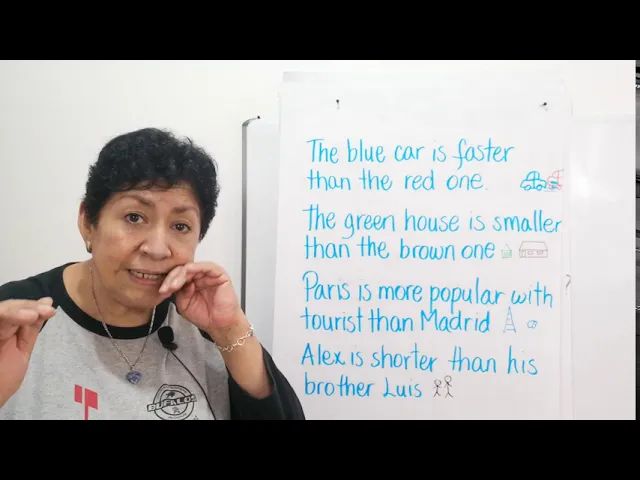 The blue car is faster
than the red one.
The green house is smaller
than the brown one
Paris is more popular with
tourist than Madrid
Alex is shorter than his
brother Luis
BUFALOS